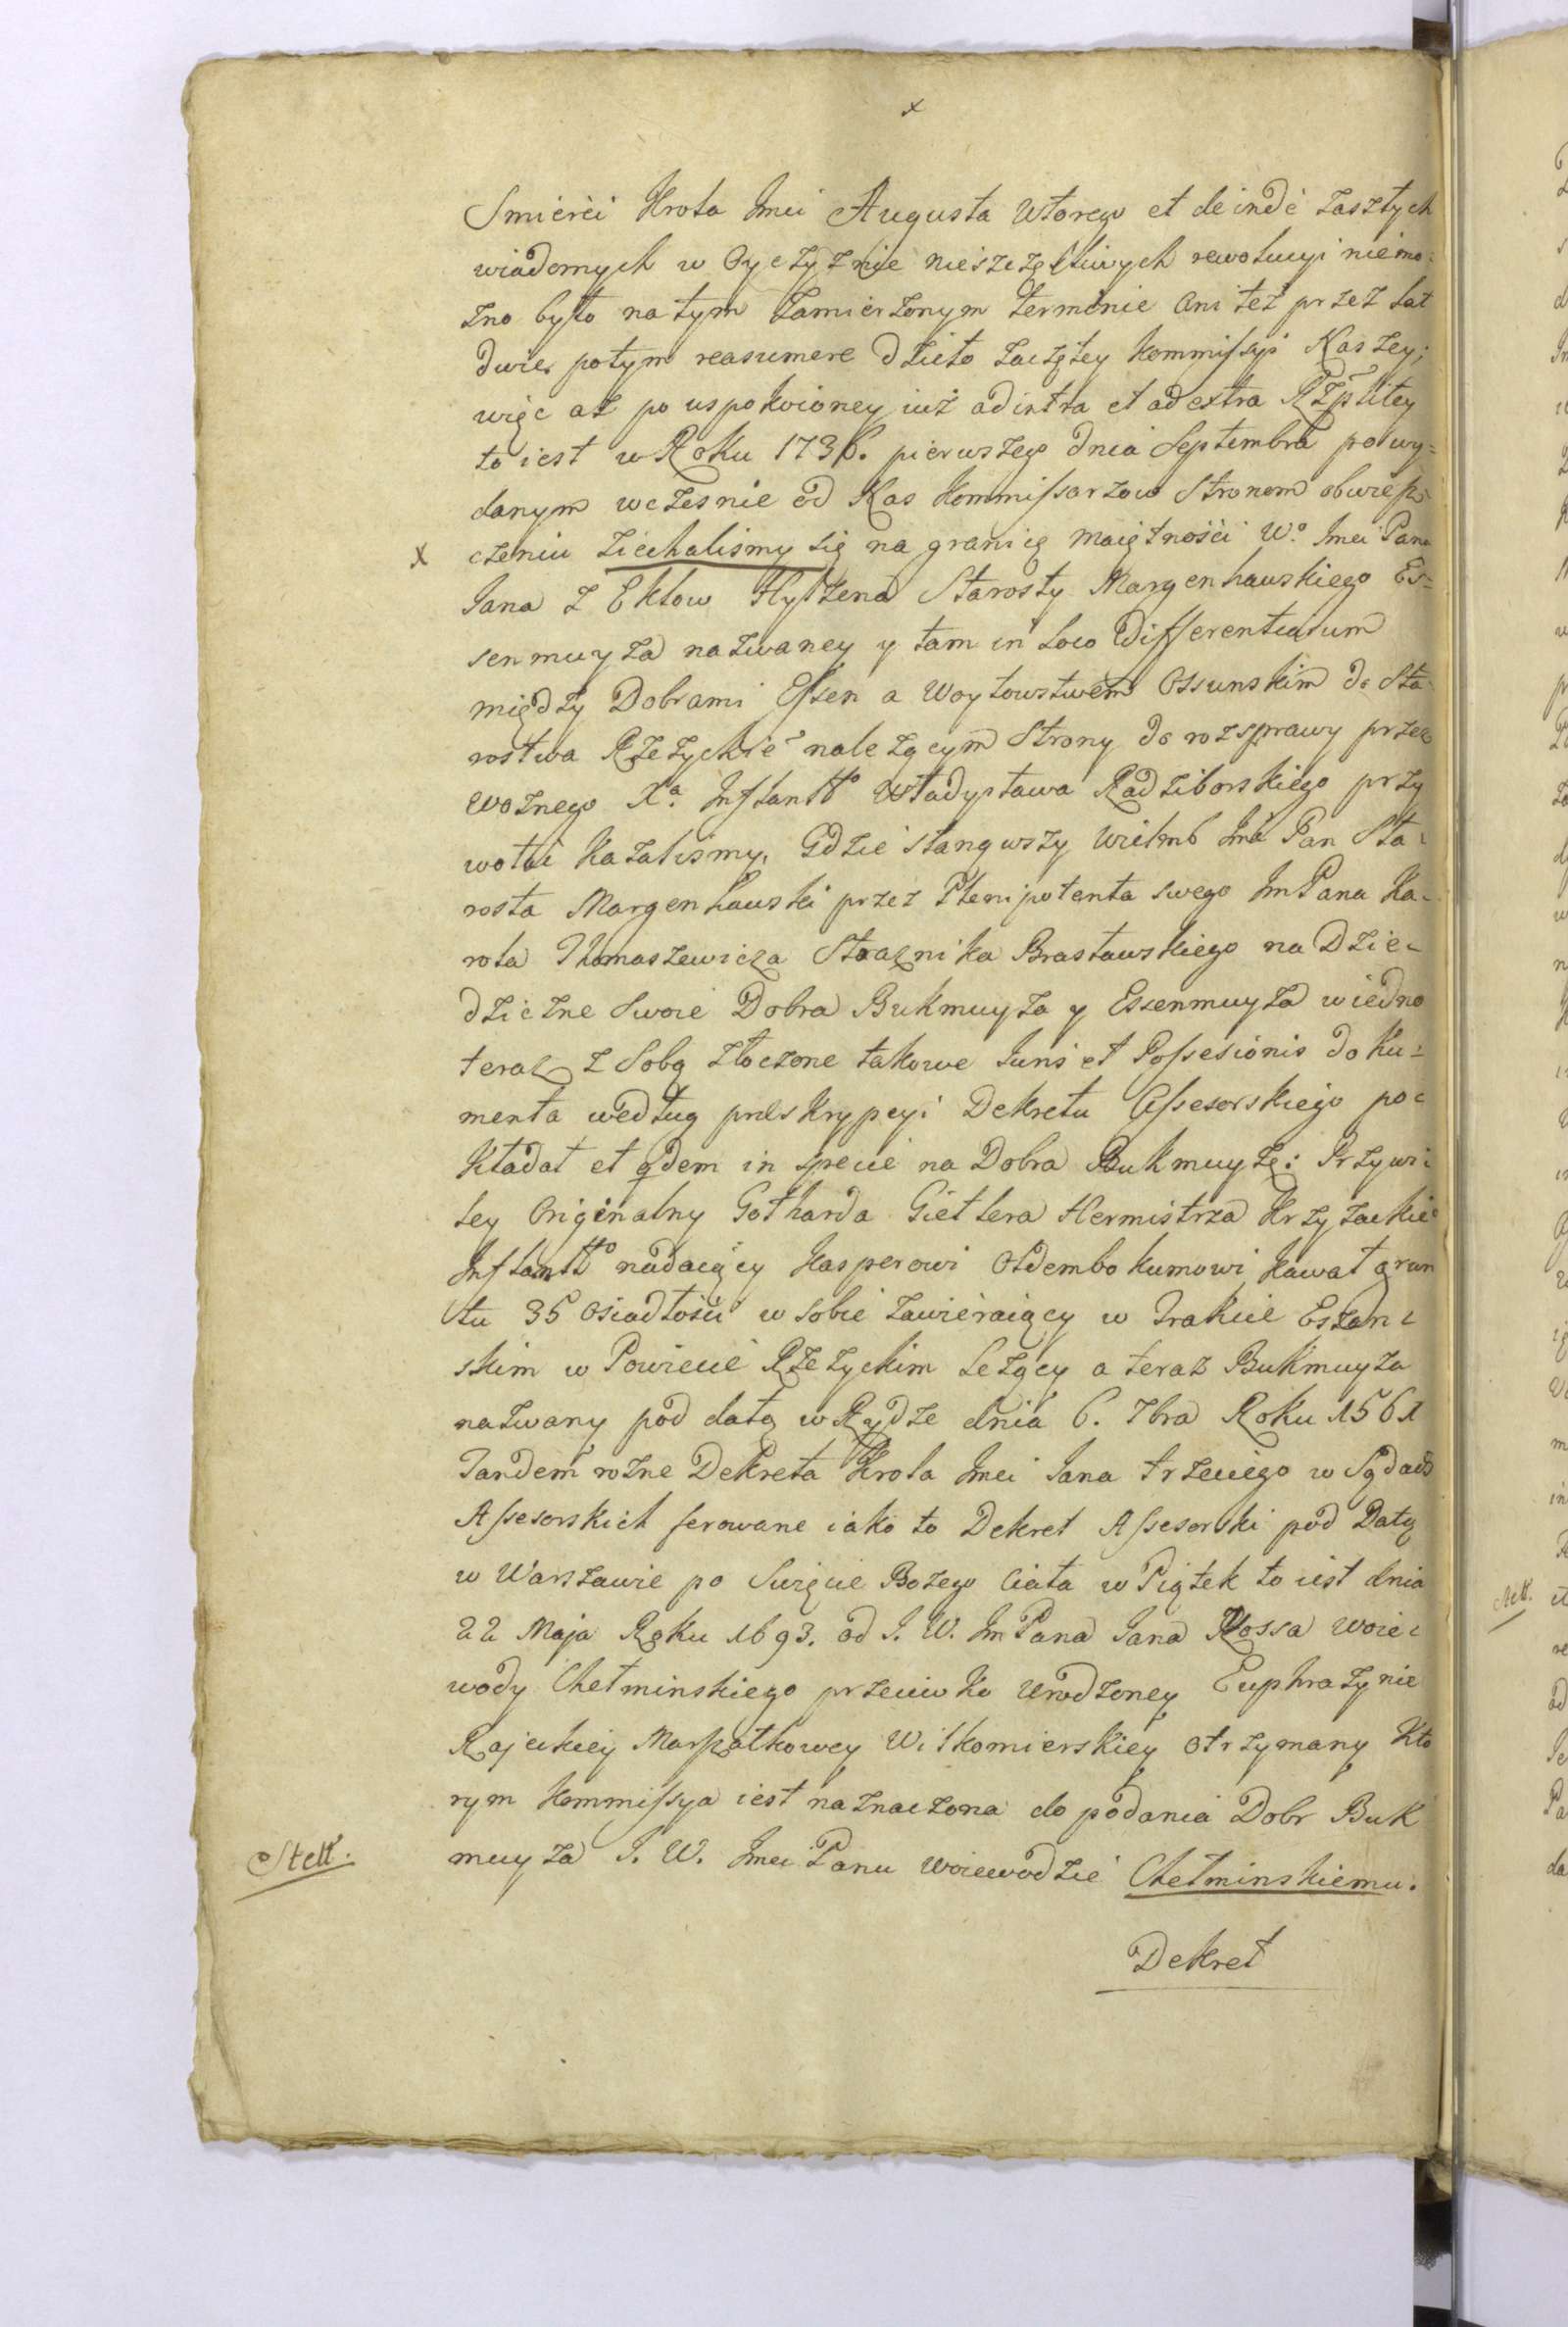 x
Smierci Krola Jmci Augusta Wtorego et deinde zaszłych
wiadomych w Oyczyznie nieszczęśliwych rewolucyi niemo-
zno było na tym zamierzonym terminie ani też przez lat
dwie potym reasumere dzieło zaczętey Kommissyi Naszey;
więc aż po uspokoioney iuż ad intra et ad extra Rzpltey
to iest w Roku 1736. pierwszego dnia Septembra po wy-
danym wczesnie od Nas Kommissarzow Stronom obwiesz-
x czeniu ziechalismy się na granicę maiętności Wo. Jmci Pana
Jana z Eklow Hylzena Starosty Margenhauskiego Es-
senmuyza nazwaney y tam in loco differentiarum
między Dobrami Essen a Woytowstwem Ossunskim do Sta-
rostwa Rzezyckie° należącym Strony do rozsprawy przez
Woznego Xa. Inflantto Władysława Radziborskiego przy
wołać kazalismy. Gdzie stanąwszy Wielmo Jmć Pan Sta-
rosta Margenhauski przez Plenipotenta swego Jm Pana Ka-
rola Thomaszewicza Strażnika Brasławskiego na Dzie-
dziczne Swoie Dobra Bukmuyza y Essenmuyza wiedno
teraz z Sobą złoczone takowe Juris et Possesionis doku-
menta według preskrypcyi Dekretu Assesorskiego po-
kładał et qdem in specie na Dobra Bukmuyzę: Przywi-
ley Originalny Gotharda Gietlera Hermistrza Krzyzackie°
Inflantto nadaiący Kasperowi Oldembokumowi kawał grun
tu 35 osiadłości w sobie zawieraiący w Trakcie Eszen-
skim w Powiecie Rzezyckim leżący a teraz Bukmuyza
nazwany pod datą w Rydze dnia 6. 7bra Roku 1561
Tandem rożne Dekreta Krola Jmci Jana trzeciego w Sądach
Assesorskich ferowane iako to Dekret Assesorski pod Datą
w Warszawie po Swięcie Bożego Ciała w Piątek to iest dnia
22 Maja Roku 1693. od J. W. Jm Pana Jana Kossa Woie-
wody Chełminskiego przeciwko Urodzoney Euphrazynie
Rajeckiey Marszałkowey Wiłkomierskiey otrzymany kto
rym Kommissya iest naznaczona do podania Dobr Buk
muyza J. W. Jmci Panu Woiewodzie Chełminskiemu.
Stett.
Dekret